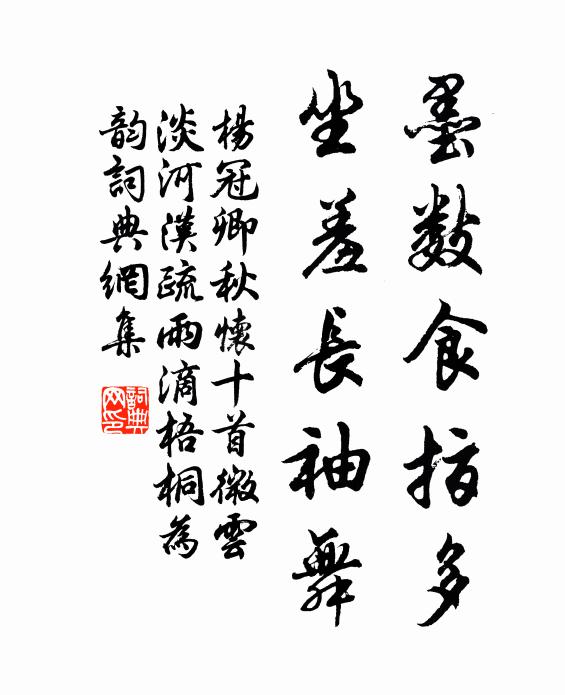 墨数食指多
坐羞長袖舞
楊冠卿秋懷十首微雲
淡河漢疏雨滴梧桐為
韵詞典網集
詞典网印